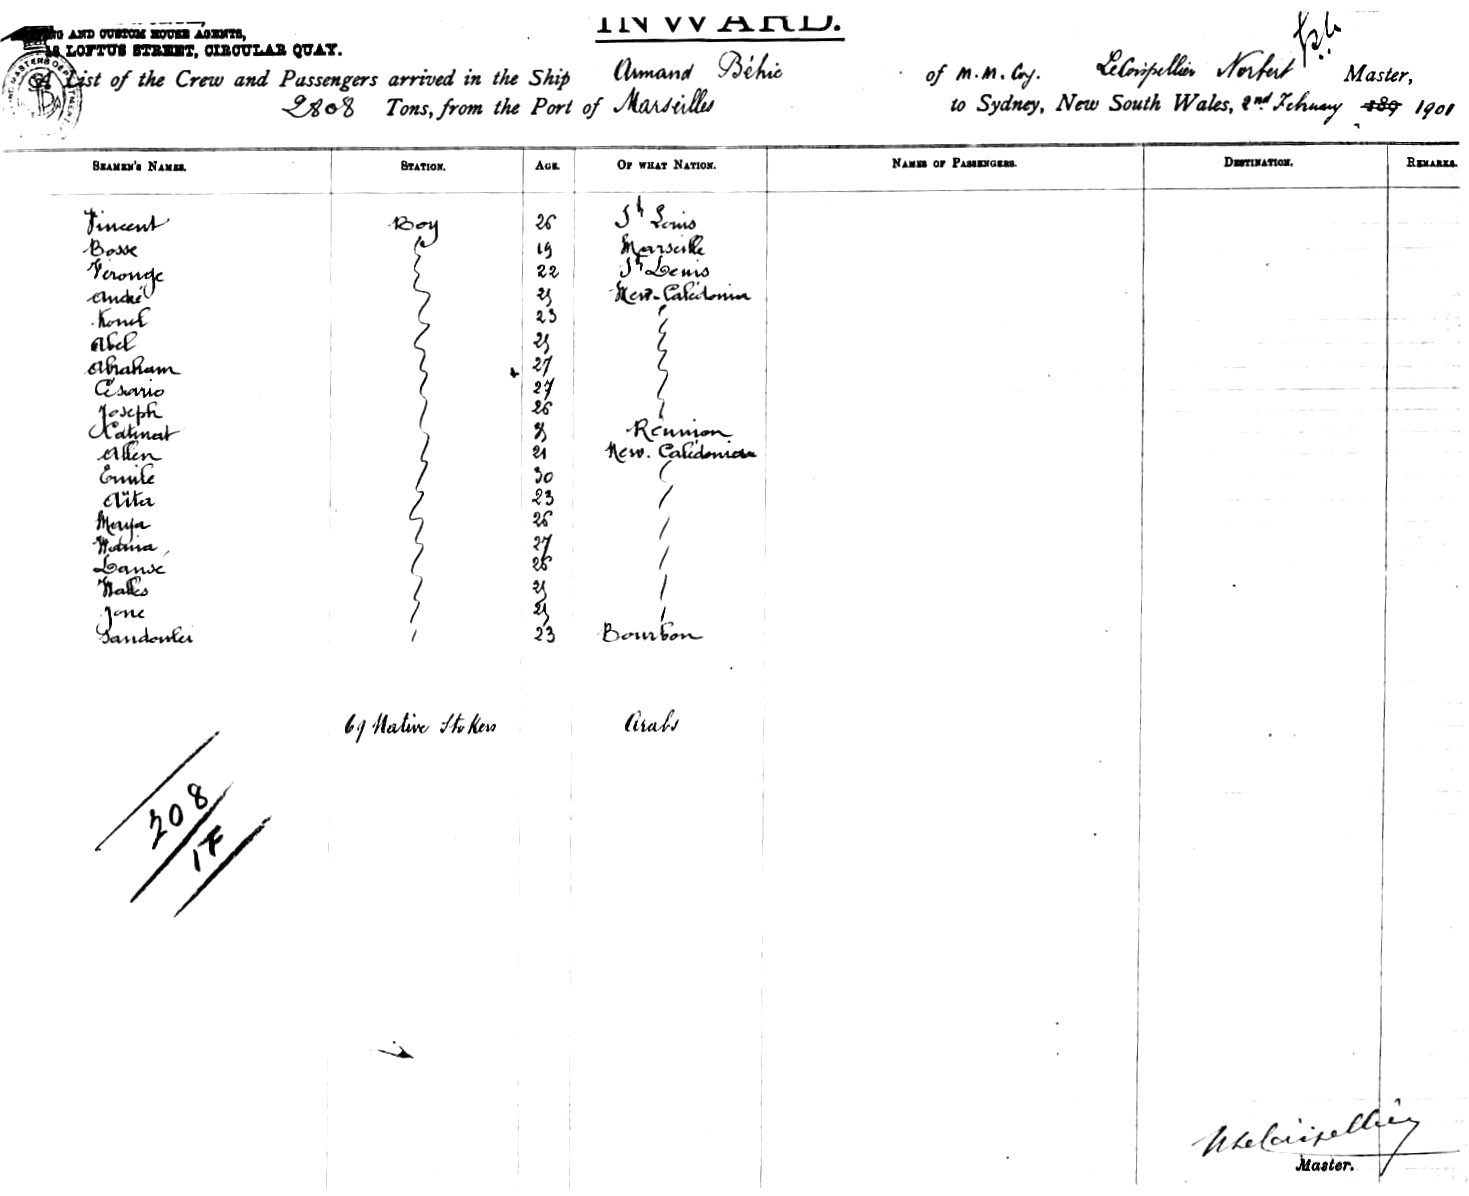 INWARD.
AND CUSTOM HOUSE AGENTS,
LOFTUS STREET, CIRCULAR QUAY.
A List of the Crew and Passengers arrived in the Ship Armand Béhic of M.M. Coy. LeCoispellier Norbert Master,
2808 Tons, from the Port of Marseilles to Sydney, New South Wales, 2nd February 189 1901
SEAMEN'S NAMES. STATION. AGE. OF WHAT NATION. NAMES OF PASSENGERS. DESTINATION. REMARKS.
Vincent Boy 26 St Louis
Bosse 19 Marseille
Veronge 22 St Denis
André 25 New-Calédonia
23
Abel 25
Abraham 27
Césario 27
Joseph 26
Catinat Réunion
Allen 21 New. Calédonien
Emile 30
Aïta 23
26
27
26
25
25
23 Bourbon
69 Native Stokers Arabs
308
17
NLeCoispellier
Master.